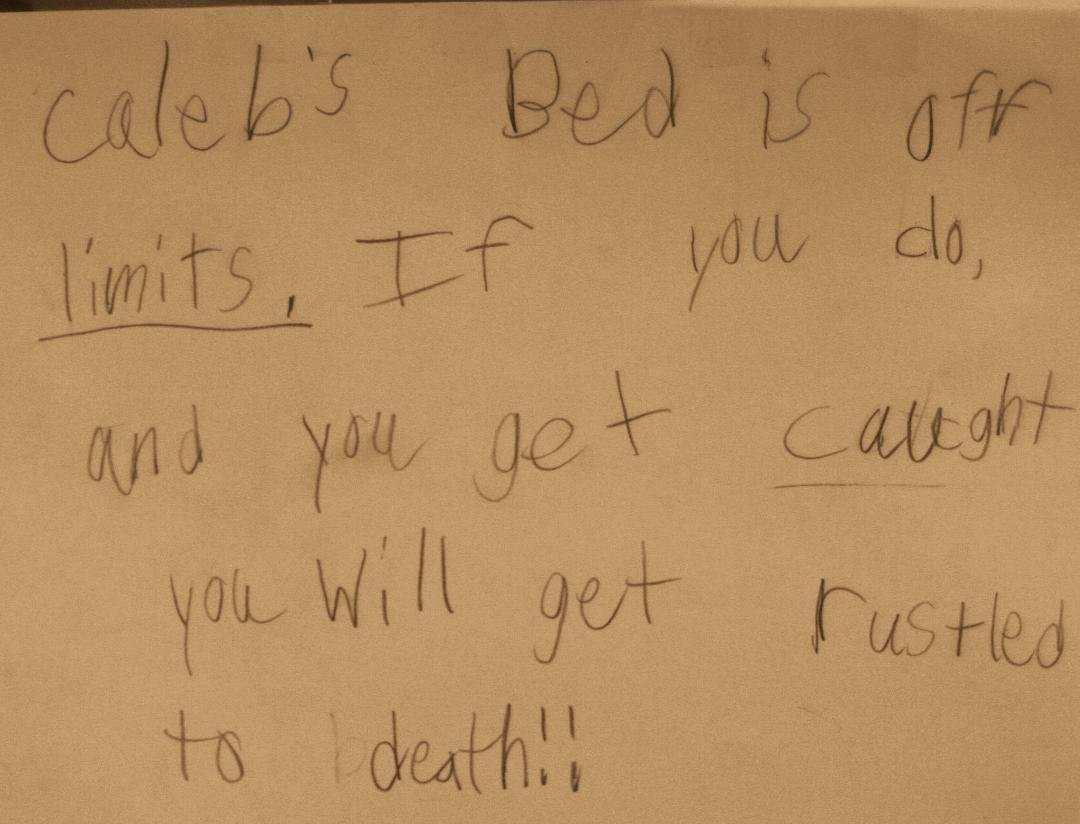 Caleb's Bed is off
limits. If you do,
and you get caught
you will get rustled
to death!!